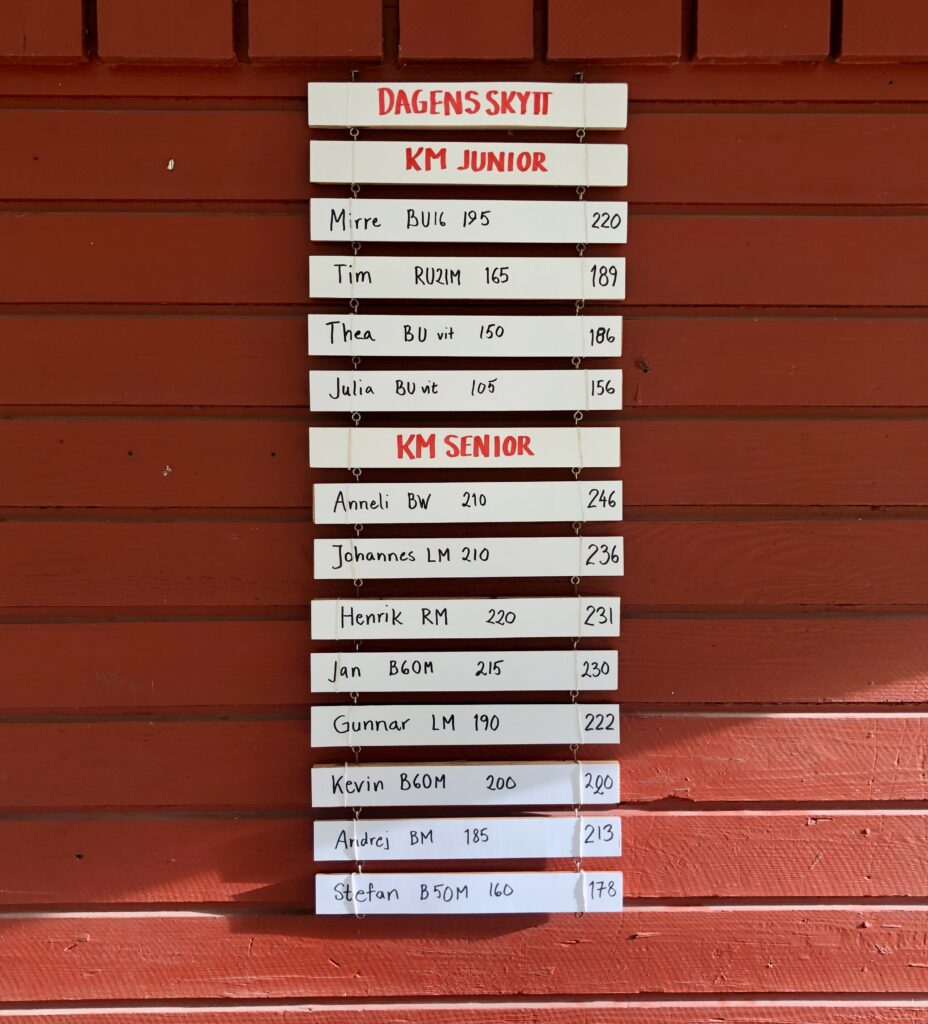 DAGENS SKYTT
KM JUNIOR
Mirre BU16 195 220
Tim RU21M 165 189
Thea BU vit 150 186
Julia BU vit 105 156
KM SENIOR
Anneli BW 210 246
Johannes LM 210 236
Henrik RM 220 231
Jan B60M 215 230
Gunnar LM 190 222
Kevin B60M 200 220
Andrej BM 185 213
Stefan B50M 160 178